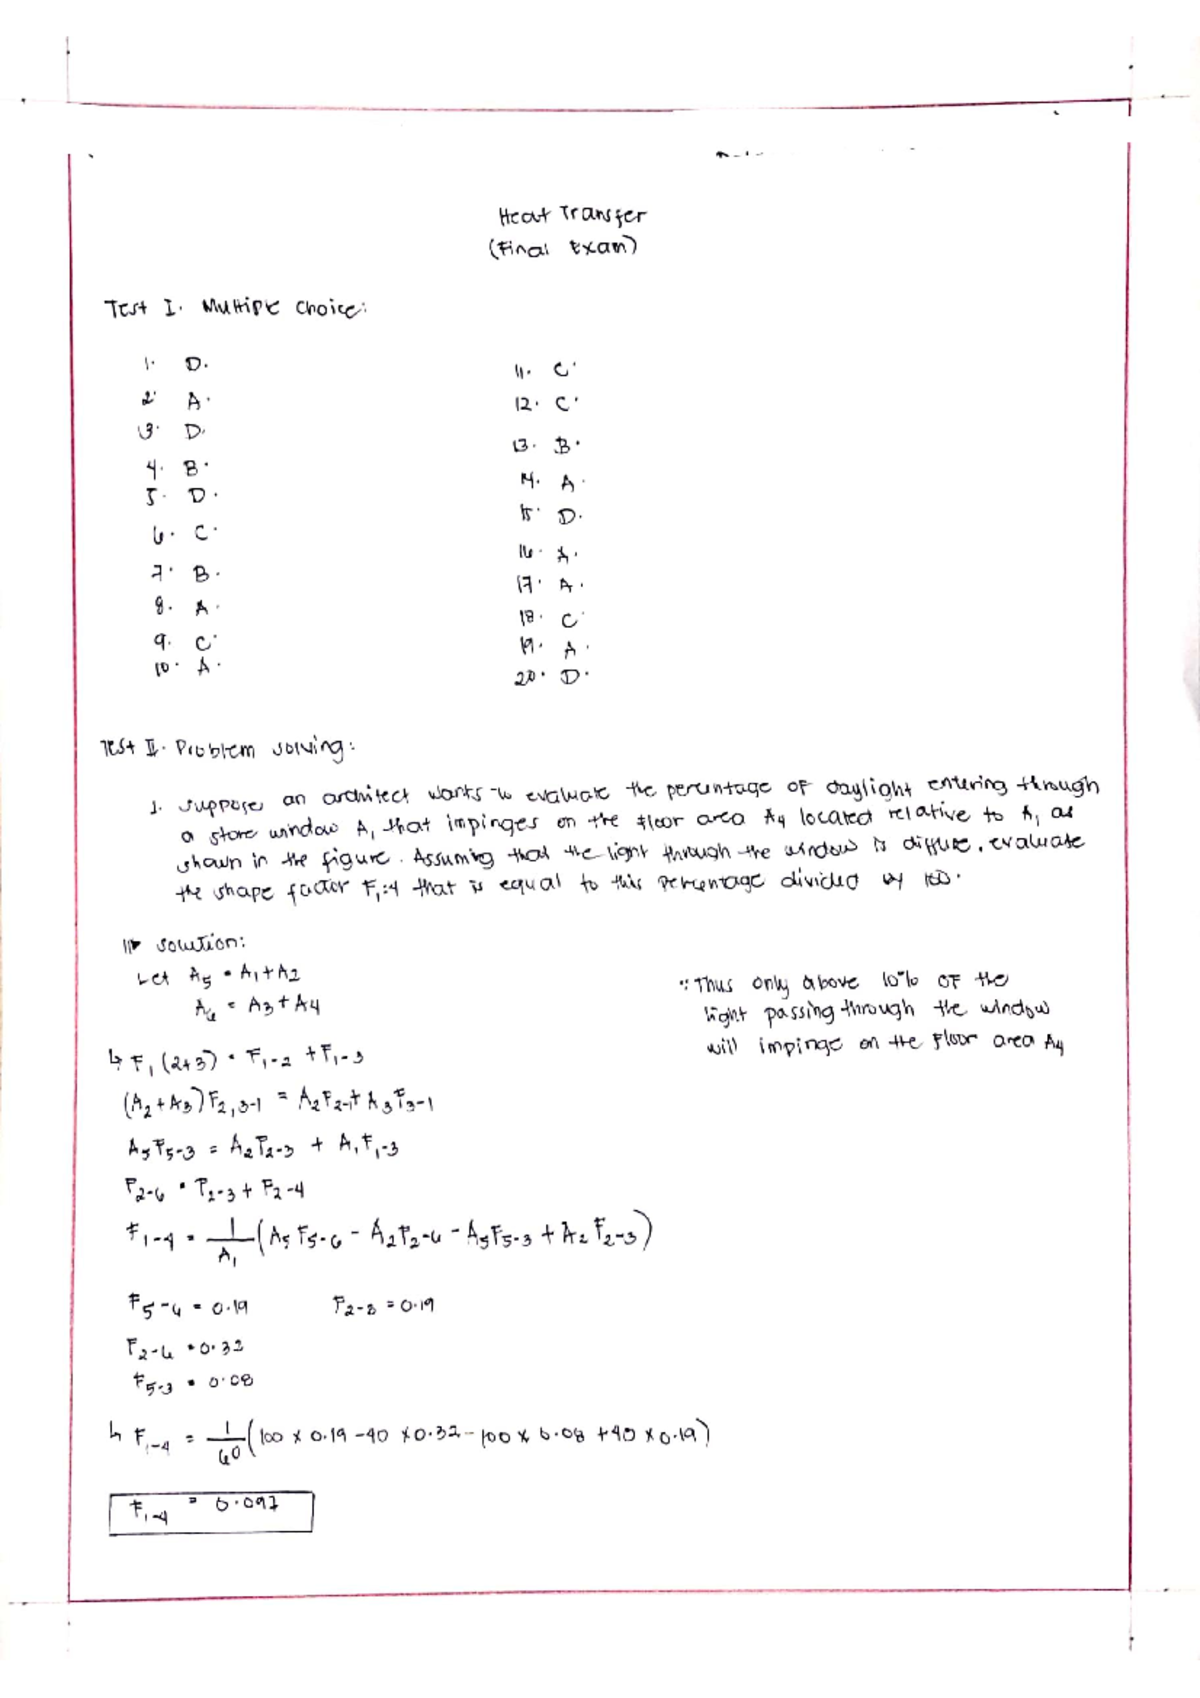 Heat Transfer
(Final Exam)
Test I. Multiple Choice:
1. D.
2. A.
3. D.
4. B.
5. D.
6. C.
7. B.
8. A.
9. C.
10. A.
11. C.
12. C.
13. B.
14. A.
15. D.
16. A.
17. A.
18. C.
19. A.
20. D.
Test II. Problem Solving:
1. Suppose an architect wants to evaluate the percentage of daylight entering through
a store window A₁ that impinges on the floor area A₄ located relative to A₁ as
shown in the figure. Assuming that the light through the window is diffuse, evaluate
the shape factor F₁-₄ that is equal to this percentage divided by 100.
Solution:
Let A₅ = A₁ + A₂
A₆ = A₃ + A₄
↳ F₁(2+3) = F₁-₂ + F₁-₃
(A₂+A₃)F₂,₃-₁ = A₂F₂-₁ + A₃F₃-₁
A₅F₅-₃ = A₂F₂-₃ + A₁F₁-₃
F₂-₆ = F₂-₃ + F₂-₄
F₁-₄ = 1/A₁ (A₅F₅-₆ - A₂F₂-₆ - A₅F₅-₃ + A₂F₂-₃)
F₅-₆ = 0.19 F₂-₃ = 0.19
F₂-₆ = 0.32
F₅-₃ = 0.08
↳ F₁-₄ = 1/60 (100 x 0.19 - 40 x 0.32 - 100 x 0.08 + 40 x 0.19)
F₁-₄ = 0.097
∵ Thus only above 10% of the
light passing through the window
will impinge on the floor area A₄